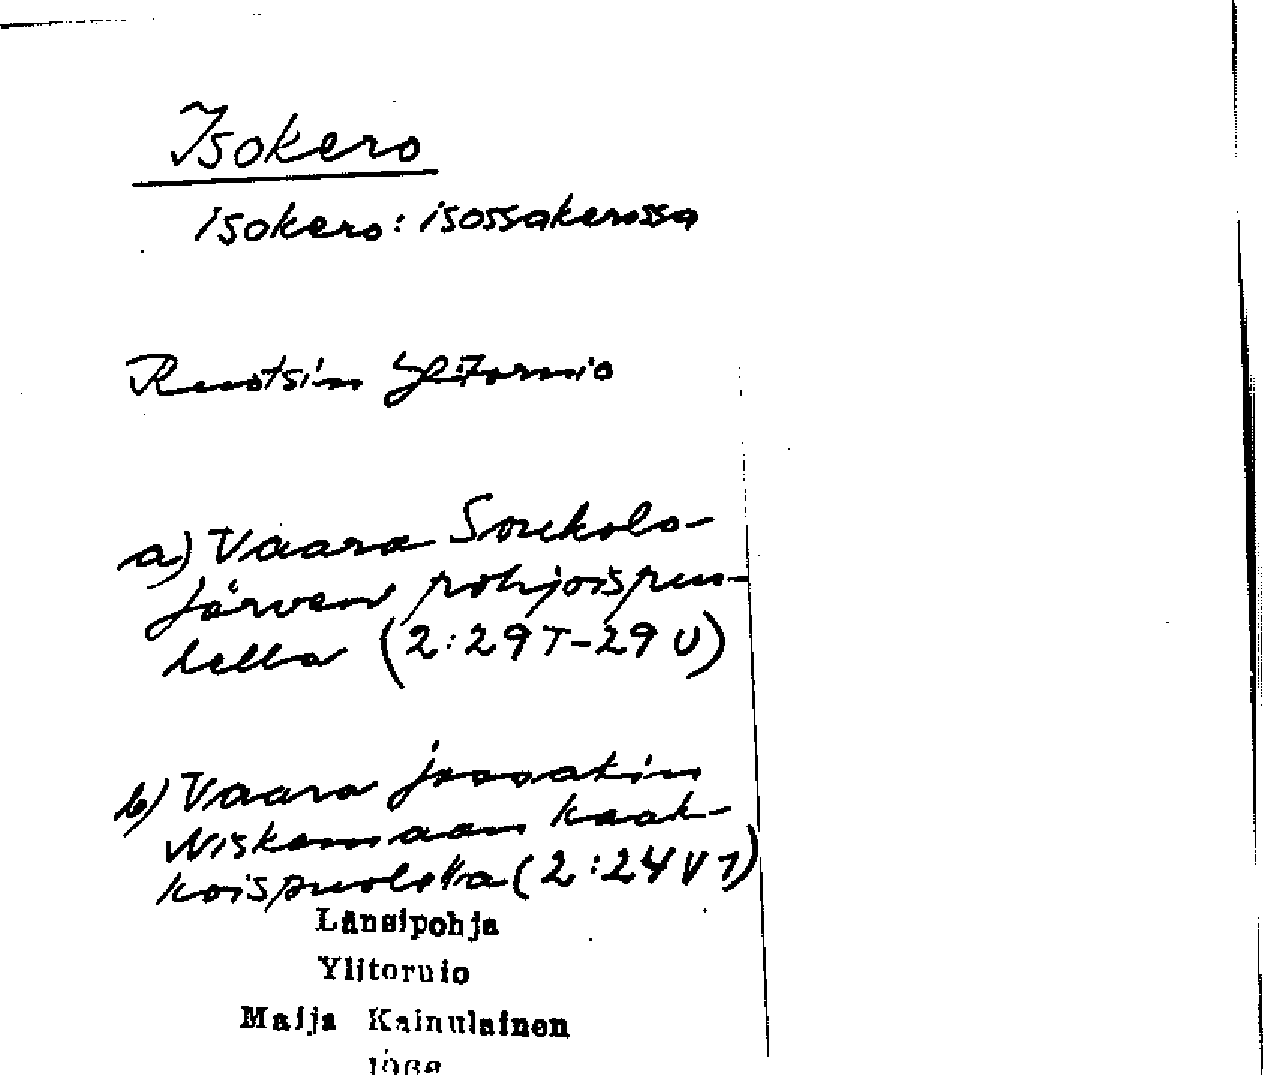 Isokero
isokero: isossakerossa
Ruotsin Ylitornio
a) Vaara Soukolo-
järven pohjoispuo-
lella (2:29 T-29 U)
b) Vaara jossakin
Niskamaan kaak-
koispuolella (2:24 V 7)
Länsipohja
Ylitornio
Maija Kainulainen